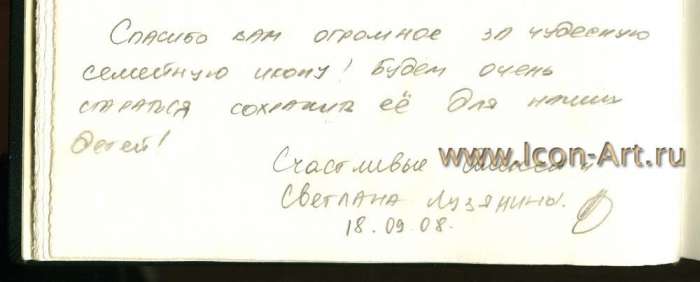 Спасибо вам огромное за чудесную
семейную икону! Будем очень
стараться сохранить её для наших
детей!
www.Icon-Art.ru
Счастливые и
Светлана Лузянины.
18.09.08.